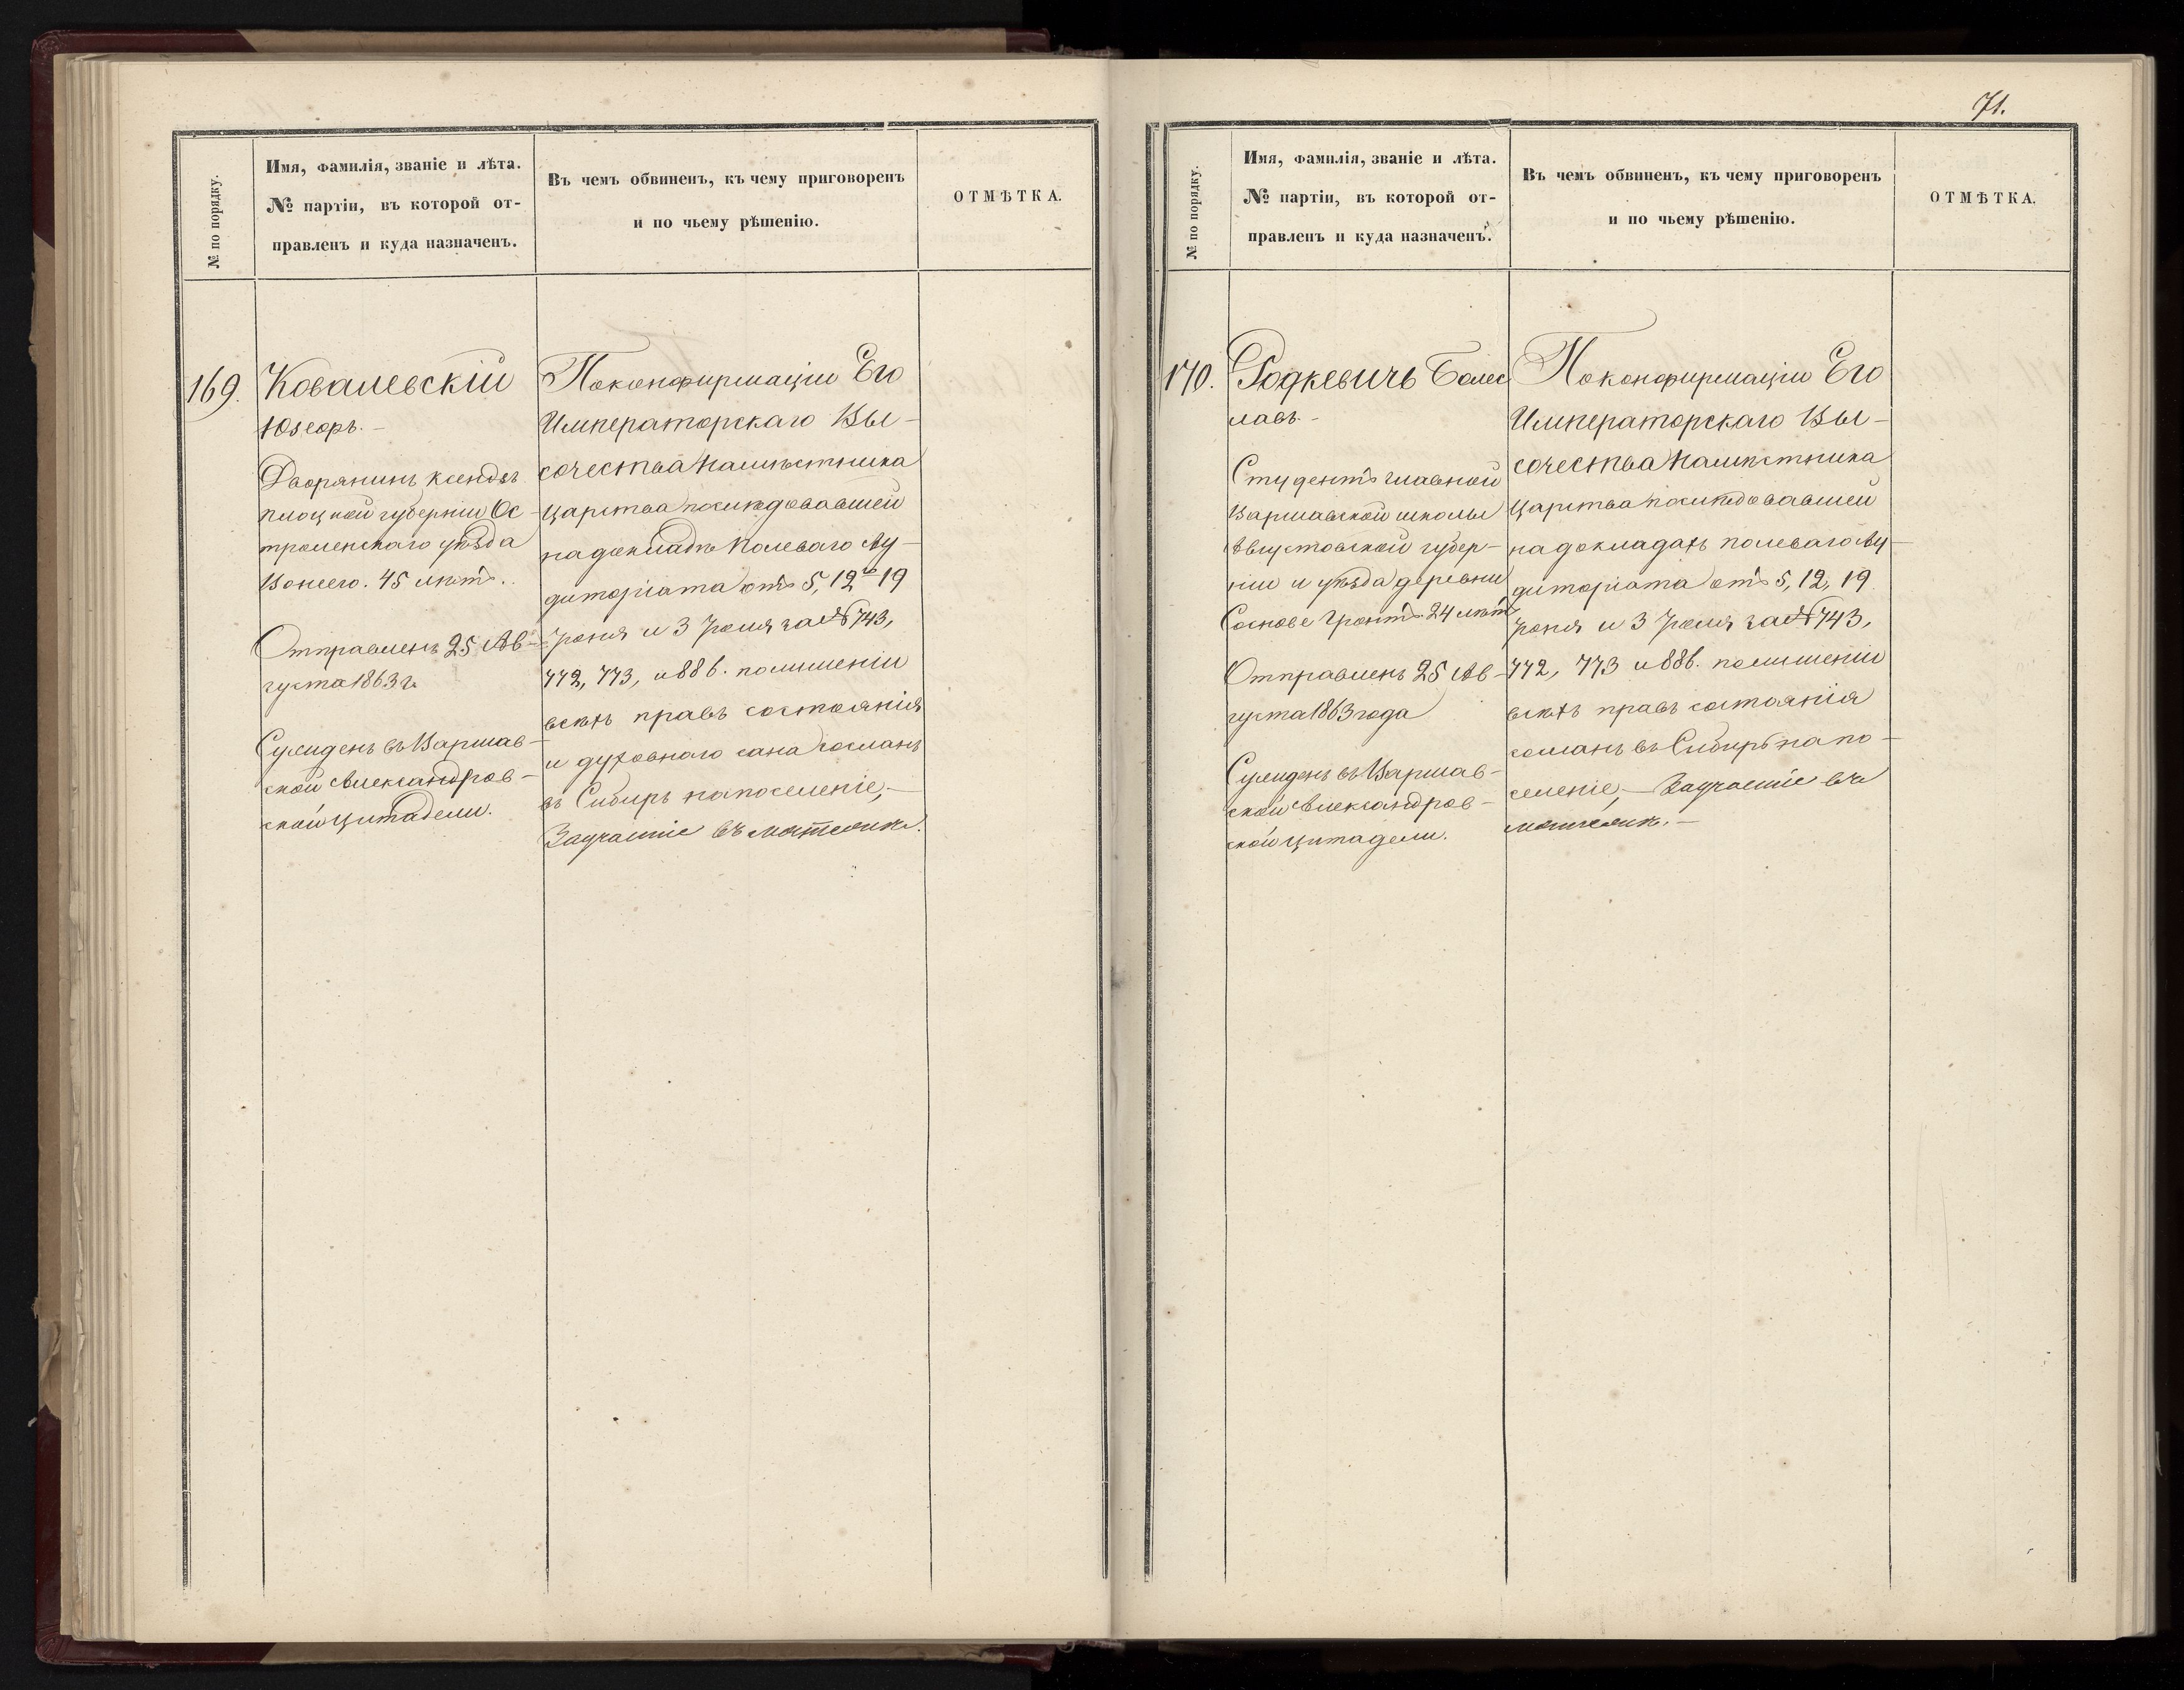 71.
№ по порядку.
Имя, фамилія, званіе и лѣта.
№ партіи, въ которой от-
правленъ и куда назначенъ.
Въ чемъ обвиненъ, къ чему приговоренъ
и по чьему рѣшенію.
ОТМѢТКА.
169.
Ковалевскій
Юзефъ.-
Дворянинъ ксендзъ
плоцкой губерніи Ос-
троленскаго уѣзда
45 лѣтъ.
Отправленъ 25 Ав-
густа 1863 г.
Сужденъ въ Варшав-
ской Александров-
ской цитадели.
По конфирмаціи Его
Императорскаго Вы-
сочества Намѣстника
царства послѣдовавшей
на докладѣ полеваго Ау-
диторіата отъ 5, 12 19
Іюня и 3 Іюля за № 743,
772, 773, и 886. по лишеніи
всѣхъ правъ состоянія
и духовнаго сана сосланъ
въ Сибирь на поселеніе,-
За участіе въ мятежѣ.
№ по порядку.
Имя, фамилія, званіе и лѣта.
№ партіи, въ которой от-
правленъ и куда назначенъ.
Въ чемъ обвиненъ, къ чему приговоренъ
и по чьему рѣшенію.
ОТМѢТКА.
170.
Родкевичъ Болес
лавъ.-
Студентъ главной
Варшавской школы
Августовской губер-
ніи и уѣзда деревни
24 лѣтъ
Отправленъ 25 Ав-
густа 1863 года
Сужденъ въ Варшав-
ской Александров-
ской цитадели.
По конфирмаціи Его
Императорскаго Вы-
сочества Намѣстника
Царства послѣдовавшей
на докладахъ полеваго Ау-
диторіата отъ 5, 12, 19
Іюня и 3 Іюля за № 743,
772, 773 и 886. по лишеніи
всѣхъ правъ состоянія
сосланъ въ Сибирь на по-
селеніе,- За участіе въ
мятежѣ.-